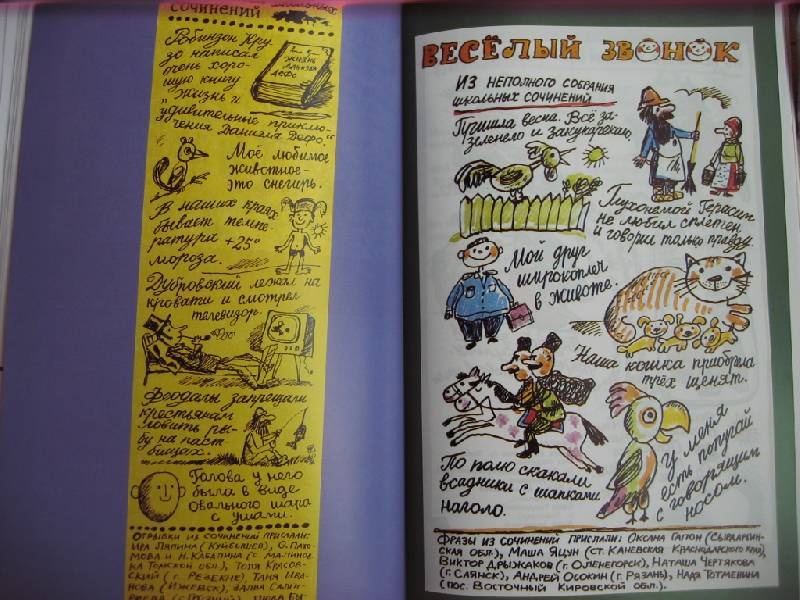 сочинений школьных
Робинзон Кру-
зо написал
очень хоро-
шую книгу
"Жизнь и
удивительные приклю-
чения Даниэля Дефо."
Жизнь
Дефо
Моё любимое
животное -
это снегирь.
В наших краях
бывает темпе-
ратура +25°
мороза.
Дубровский лежал на
кровати и смотрел
телевизор.
Феодалы запрещали
крестьянам
ловить ры-
бу на паст-
бищах.
Голова у него
была в виде
овального шара
с ушами.
Отрывки из сочинений прислали:
Ира Ляпина (Куйбышев), О. Пахо-
мова и Н. Кабапина (г. Малинов-
ка Томской обл.), Толя Красов-
ский (г. Резекне), Таня Ива-
нова (Ижевск),
ВЕСЁЛЫЙ ЗВОНОК
Из неполного собрания
школьных сочинений
Пришла весна. Всё за-
зеленело и закукарекало.
Глухонемой Герасим
не любил сплетен
и говорил только правду.
Мой друг
широкоплеч
в животе.
Наша кошка приобрела
трёх щенят.
По полю скакали
всадники с шапками
наголо.
У меня
есть попугай
с говорящим
носом.
Фразы из сочинений прислали: Оксана Гапон (Сыкларбин-
ская обл.), Маша Яцун (ст. Каневская Краснодарского края),
Виктор Дрыжаков (г. Оленегорск), Наташа Чертякова
(г. Слянск), Андрей Осокин (г. Рязань), Надя Тотменина
(пос. Восточный Кировской обл.).